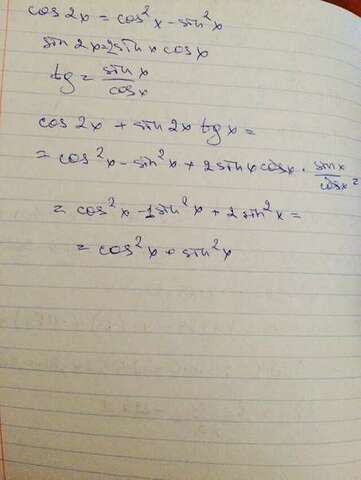 cos 2x = cos²x - sin²x
sin 2x = 2sin x cosx
tg = sin x / cosx
cos 2x + sin 2x tg x =
= cos²x - sin²x + 2sin x cosx · sinx / cosx =
= cos²x - 1sin²x + 2 sin²x =
= cos²x + sin²x